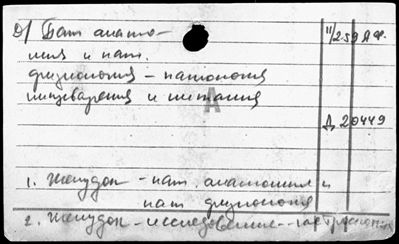 д) Пат анато-
мия и пат.
физиология – патология
пищеварения и питания
II/259 АФ.
А
Д 20449
1. Желудок – пат. анатомия и
пат физиология
2. Желудок – исследование – гастроскопия